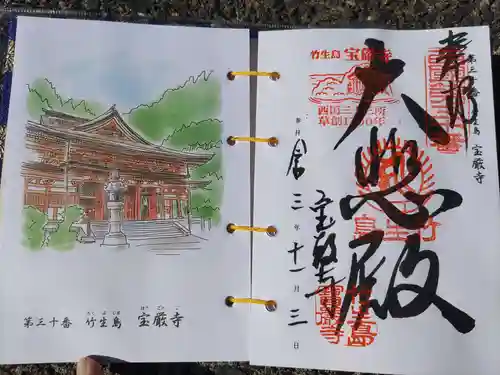 第三十番 竹生島 宝厳寺
竹生島 宝厳寺
西国三十三所
草創1300年
奉拝
第三十番 竹生島 宝厳寺
大悲殿
宝厳寺
令三年十一月三日